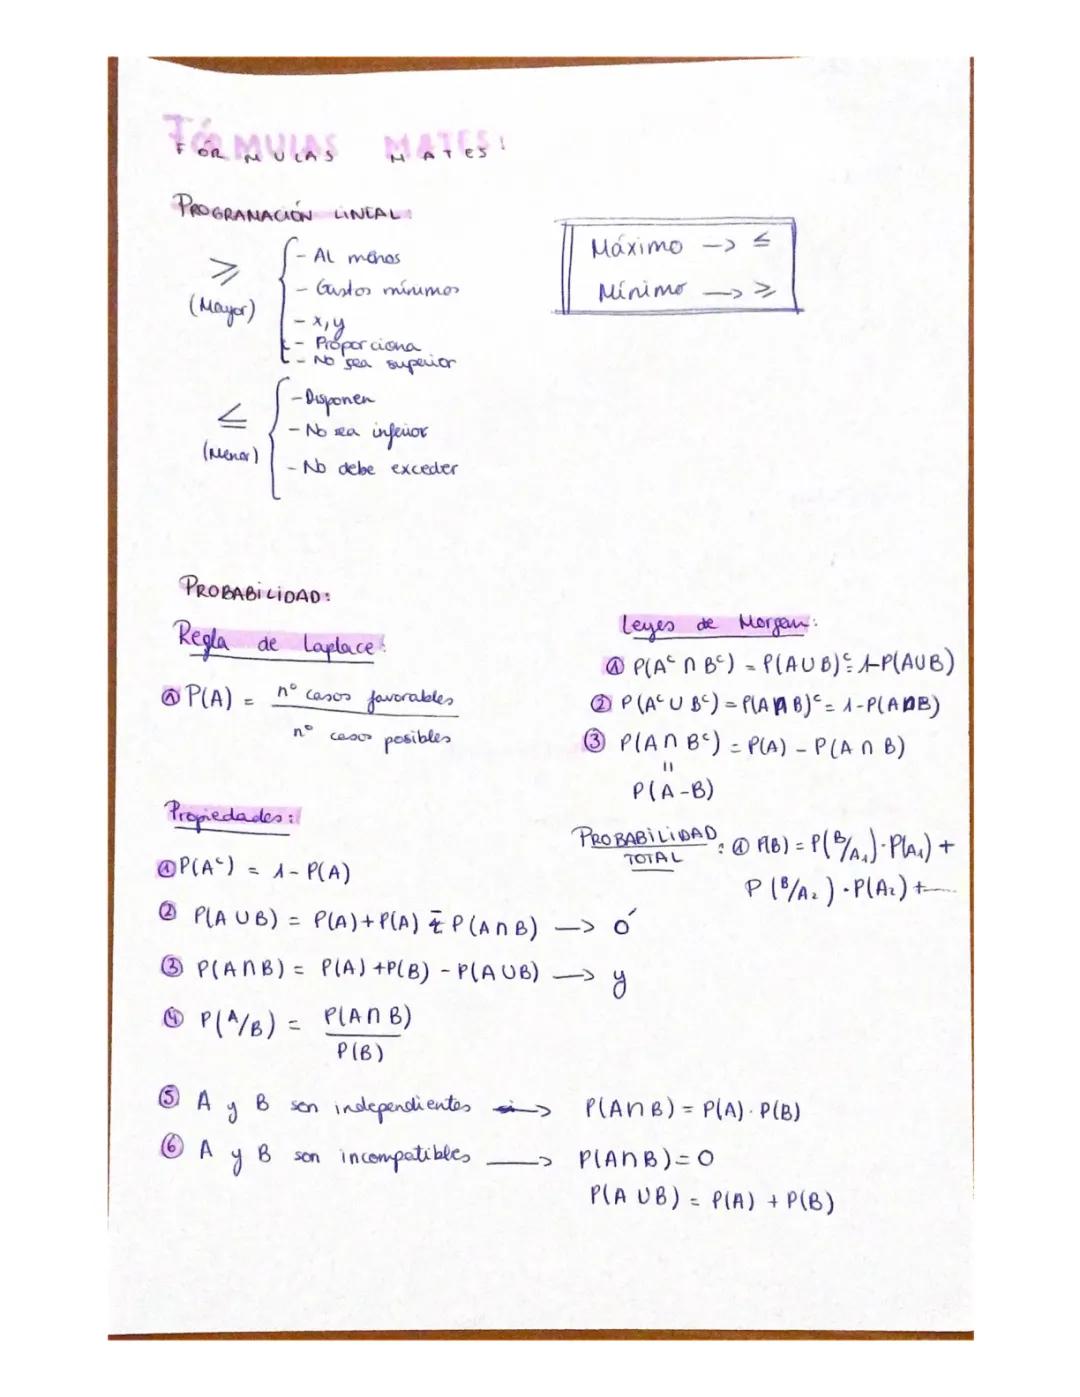 FÓRMULAS MATES:
FORMULAS MATES
PROGRAMACIÓN LINEAL:
≥ (Mayor)
- Al menos
- Gastos mínimos
- x, y
- Proporciona
- No sea superior
≤ (Menor)
- Disponen
- No sea inferior
- No debe exceder
Máximo -> ≤
Mínimo -> ≥
PROBABILIDAD:
Regla de Laplace:
① P(A) = nº casos favorables / nº casos posibles
Leyes de Morgan:
① P(Aᶜ ∩ Bᶜ) = P(A∪B)ᶜ = 1-P(A∪B)
② P(Aᶜ ∪ Bᶜ) = P(A∩B)ᶜ = 1-P(A∩B)
③ P(A∩Bᶜ) = P(A) - P(A∩B)
=
P(A-B)
Propiedades:
① P(Aᶜ) = 1 - P(A)
② P(A∪B) = P(A)+P(A) - P(A∩B) -> ó
③ P(A∩B) = P(A)+P(B) - P(A∪B) -> y
④ P(A/B) = P(A∩B) / P(B)
⑤ A y B son independientes -> P(A∩B) = P(A)·P(B)
⑥ A y B son incompatibles -> P(A∩B) = 0
P(A∪B) = P(A) + P(B)
PROBABILIDAD TOTAL: ① P(B) = P(B/A₁)·P(A₁) +
P(B/A₂)·P(A₂) + ....